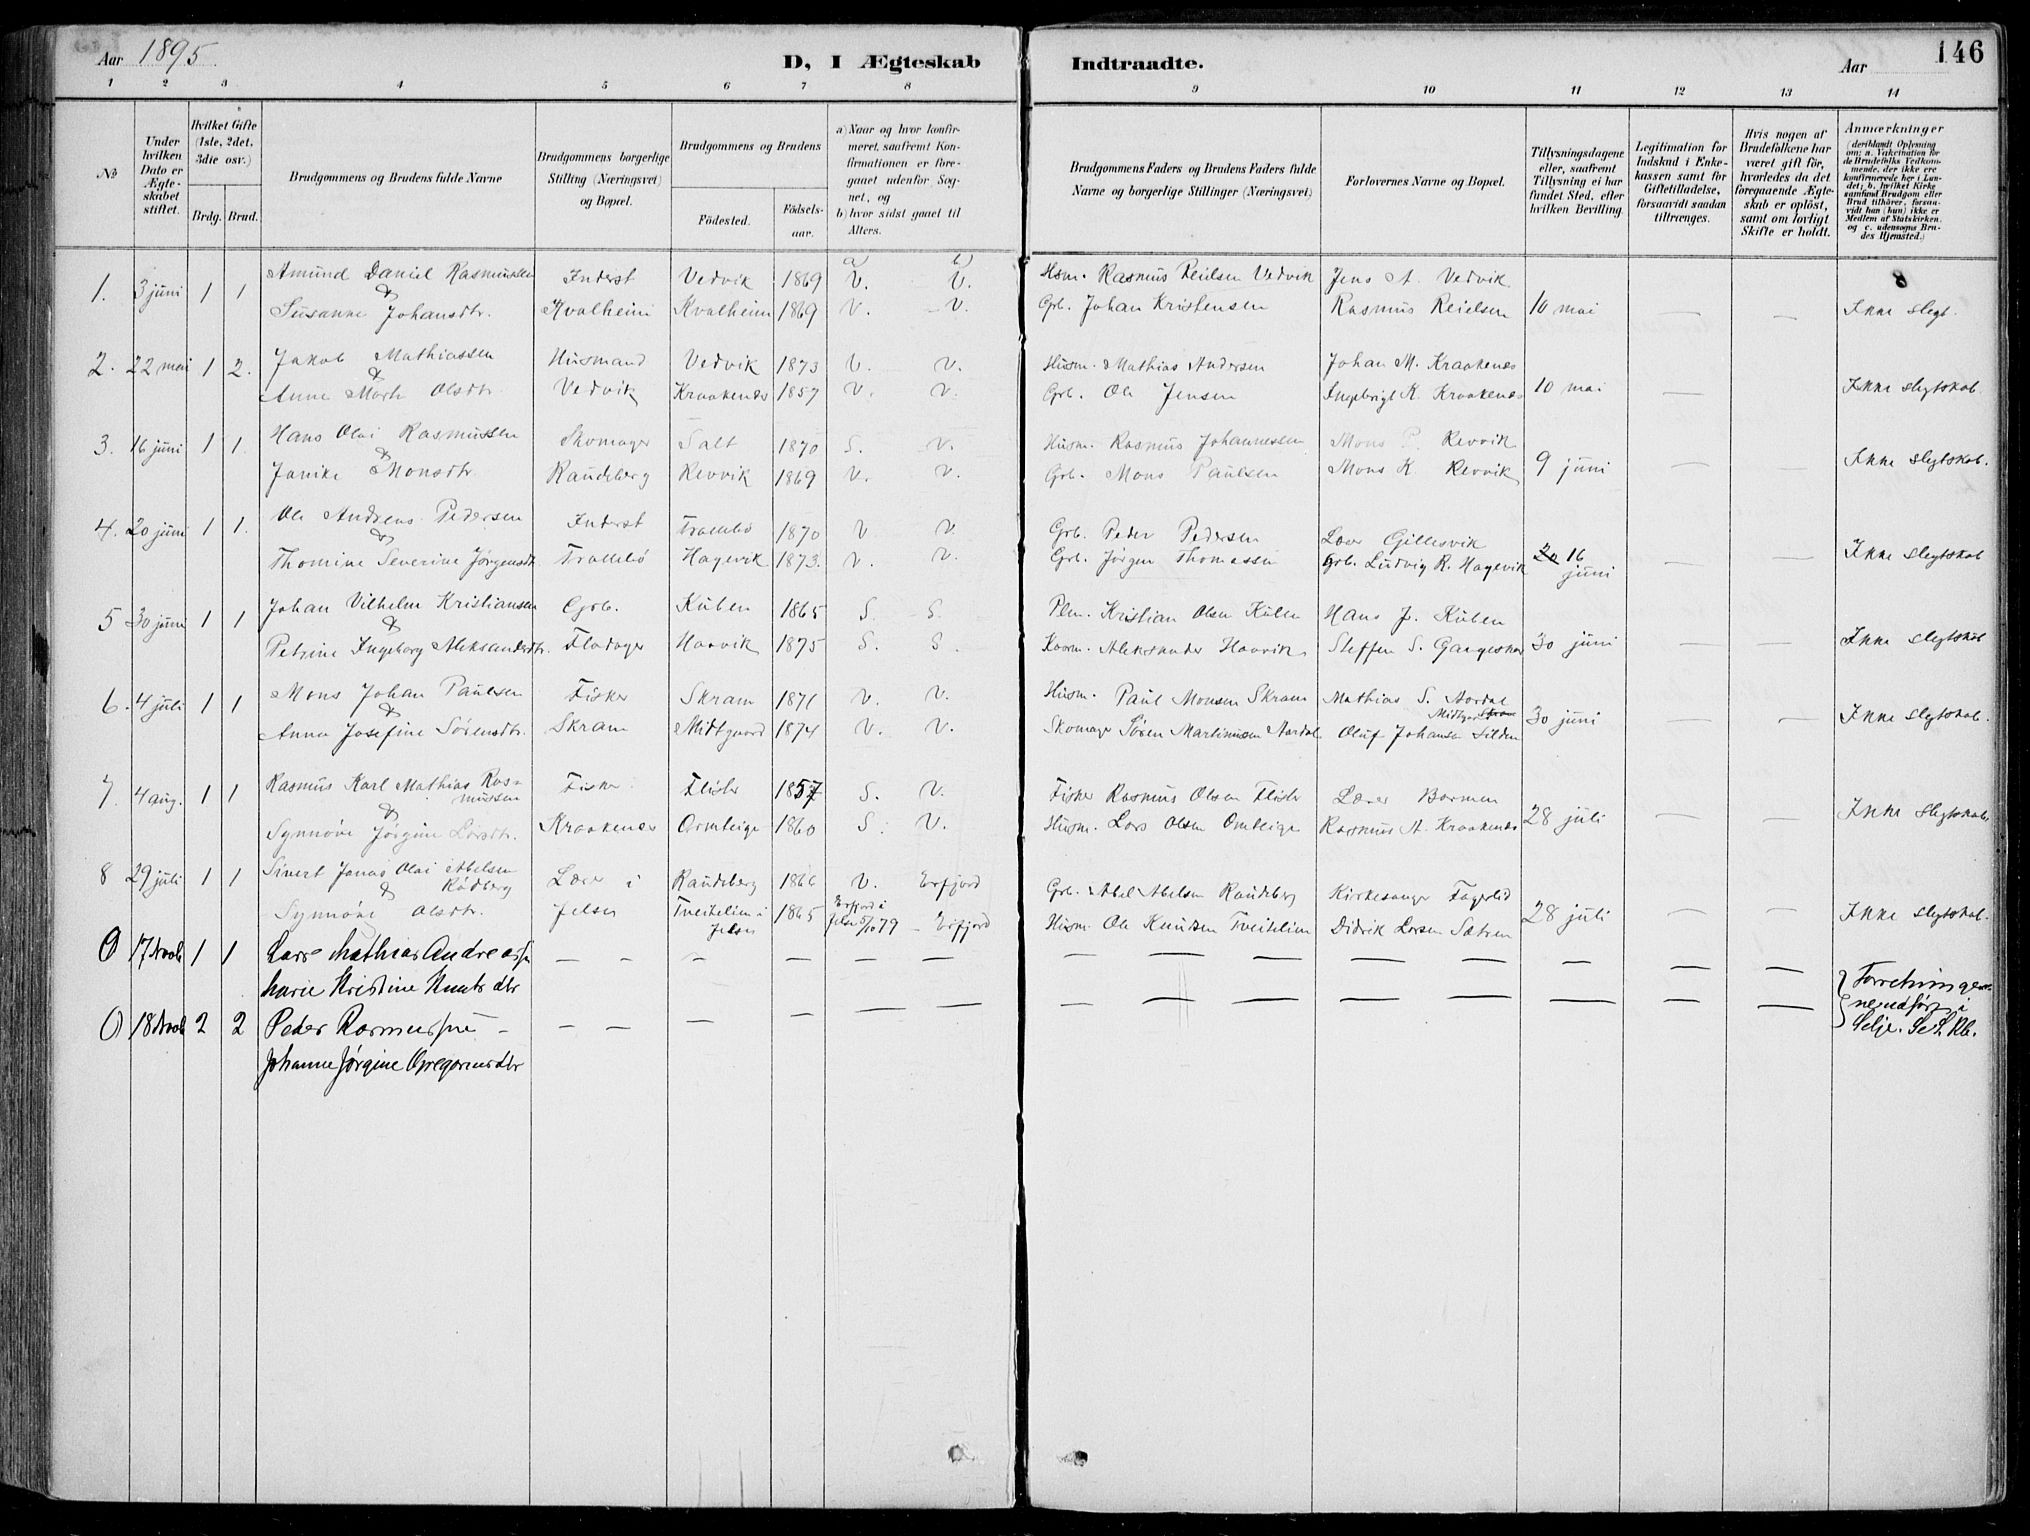 Aar 1895.
D, I Ægteskab Indtraadte.
Aar 146
1 2 3 4 5 6 7 8 9 10 11 12 13 14
No
Under hvilken Dato er Ægteskabet stiftet.
Hvilket Gifte (1ste, 2det, 3die osv.)
Brdg. Brud.
Brudgommens og Brudens fulde Navne
Brudgommens borgerlige Stilling (Næringsvei) og Bopæl.
Brudgommens og Brudens
Födested. Födselsaar.
a) Naar og hvor konfirmeret, saafremt Konfirmationen er foregaaet udenfor Sognet, og
b) hvor sidst gaaet til Alters.
Brudgommens Faders og Brudens Faders fulde Navne og borgerlige Stillinger (Næringsvei)
Forlovernes Navne og Bopæl.
Tillysningsdagene eller, saafremt Tillysning ei har fundet Sted, efter hvilken Bevilling.
Legitimation for Indskud i Enkekassen samt for Giftetilladelse, forsaavidt saadan tiltrænges.
Hvis nogen af Brudefolkene har været gift før, hvorledes da det foregaaende Ægteskab er oplöst, samt om lovligt Skifte er holdt.
Anmærkninger (deriblandt Oplysning om: a. Vakcination for de Brudefolks Vedkommende, der ikke ere konfirmerede her i Landet; b. hvilket Kirkesamfund Brudgom eller Brud tilhörer, forsaavidt han (hun) ikke er Medlem af Statskirken, og c. udensogns Brudes Hjemsted.)
a) b)
1. 3 juni 1 1 Amund Daniel Rasmussen Inderst Vedvik 1869 V. V. Hsm. Rasmus Reielsen Vedvik Jens A. Vedvik
& Susanne Johansdtr. Kvalheim Kvalheim 1869 V. V. Grb. Johan Kristensen Rasmus Reielsen 10 mai — — Ikke slegt.
2. 22 mai 1 2. Jakob Mathiassen Husmand Vedvik 1873 V. V. Husm. Mathias Andersen Johan M. Kraakenes
& Anne Marte Olsdtr. Vedvik Kraakenes 1857 V. V. Grb. Ole Jensen Ingebrigt K. Kraakenes 10 mai — Ikke slegtskab.
3. 16 juni 1 1. Hans Olai Rasmussen Skomager Salt 1870 S. V. Husm. Rasmus Johannessen Mons P. Revvik
& Janike Monsdtr. Raudeberg Revvik 1869 V. V. Grb. Mons Paulsen Mons K. Revvik 9 juni — — Ikke slegtskab.
4. 20 juni 1 1. Ole Andreas Pedersen Inderst Trollebö 1870 V V. Grb. Peder Pedersen Lær Gillesvik
& Thomine Severine Jørgensdt. Trollebö Hagevik 1873. V. V. Grb. Jörgen Thomassen Grb. Ludvig R. Hagevik 16 juni — — Ikke slegtskab
5 30 juni 1 1 Johan Vilhelm Kristiansen Grb. Kuben 1865 S. S. Plm. Kristian Olsen Kuben Hans J. Kuben
& Petrine Ingeborg Aleksandersdtr. Flodager Hovvik 1875 S. S. Aleksander Hovvik Steffen S. Gangeskar 30 juni — — Ikke slegtskab
6. 4 juli 1 1 Mons Johan Paulsen Fisker Skram 1871 V. V. Husm. Paul Monsen Skram Mathias S. Aardal
& Anna Josefine Sörensdtr. Skram Midtgaard 1874 V. V. Skomager Sören Martinusen Aardal Oluf Johansen Silden 30 juni — — Ikke slegtskab.
7. 4 aug. 1 1 Rasmus Karl Mathias Rasmussen Fisker Flister 1857 S. V. Fisker Rasmus Olsen Flister Lærer Barmen
& Synnöve Jörgine Larsdtr. Kraakenes Ormteige 1860 S. V. Husm. Lars Olsen Omteige Rasmus A. Kraakenes 28 juli — — Ikke slegtskab.
8 29 juli 1 1 Sivert Jonas Olai Abelsen Rödberg Lærer i Raudeberg 1866 V. Erfjord Grb. Abel Abelsen Raudeberg Kirkesanger Fagerlid
& Synnöve Olsdtr. Jelse Tveitelien i Jelse 1865 Erfjord i Jelse 5/10 79 — Erfjord Husm. Ole Knudsen Tveitelien Didrik Larsen Sætren 28 juli — — Ikke slegtskab.
0 17 Novb 1 1 Lars Mathias Andreassen — — — — — — — — — — — — —
Marie Kristine Knutsdtr
0 18 Novb 2 2 Peder Rasmussen — — — — — — — — — — — — —
Johanne Jørgine Gregoriusdtr
Forretningerne udført i Selje. Se S. Kb.